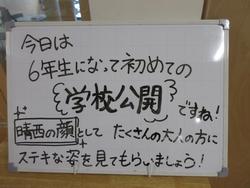 今日は
6年生になって初めての
学校公開ですね!
晴西の顔として たくさんの大人の方に
ステキな姿を見てもらいましょう!